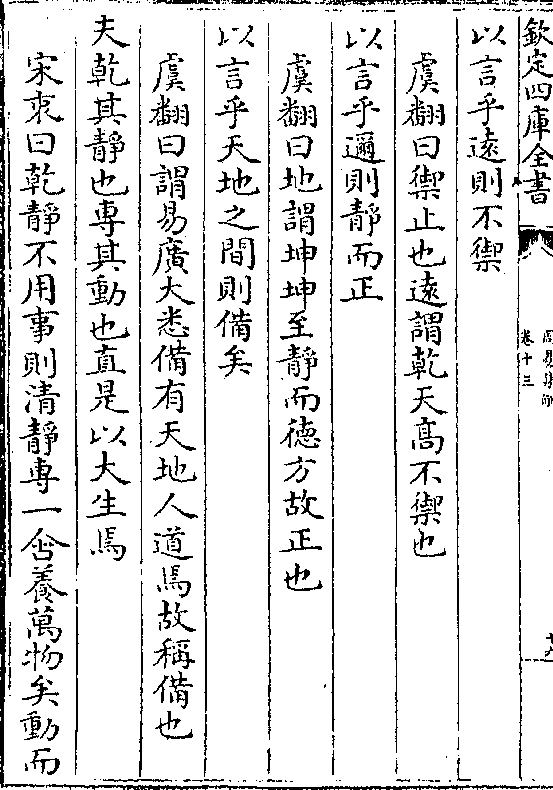 欽定四庫全書
卷十三
以言乎遠則不禦
虞翻曰禦止也遠謂乾天高不禦也
以言乎邇則靜而正
虞翻曰地謂坤坤至靜而徳方故正也
以言乎天地之間則備矣
虞翻曰謂易廣大悉備有天地人道焉故稱備也
夫乾其靜也専其動也直是以大生焉
宋衷曰乾靜不用事則清靜専一含養萬物矣動而